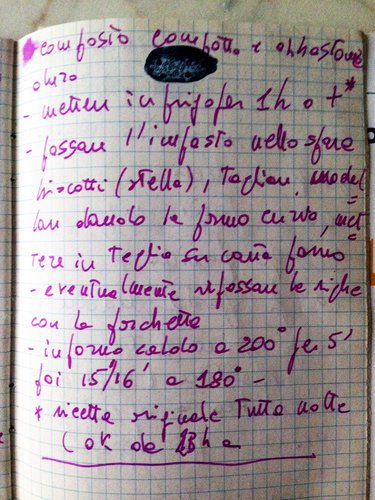 composto compatto e abbastanza
duro
- mettere in frigo per 1h o + *
- passare l'impasto nello spara
biscotti (stella), tagliare, model
lare dando la forma curva, met
tere in teglia su carta forno
- eventualmente ripassare le righe
con la forchetta
- in forno caldo a 200° per 5'
poi 15'/16' a 180° -
* ricetta originale tutta notte
(ok da 1h a